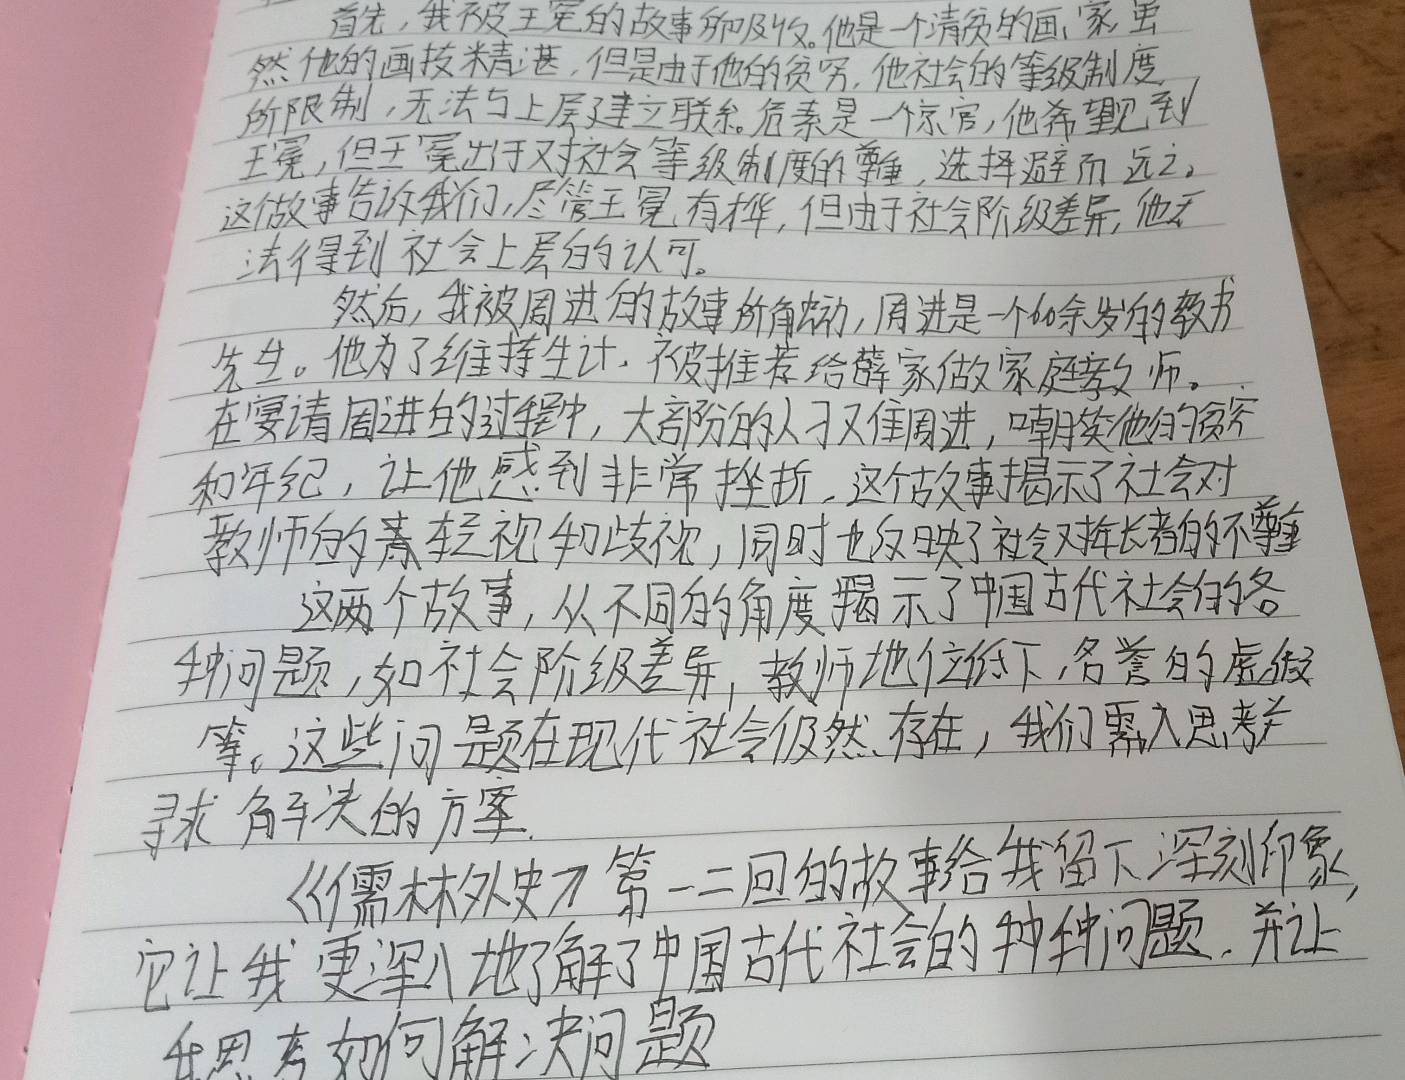 首先，我被王冕的故事所吸收。他是一个清贫的画家，虽
然他的画技精湛，但是由于他的贫穷，他社会的等级制度
所限制，无法与上层建立联系。危素是一个京官，他希望见到
王冕，但王冕出于对社会等级制度的尊重，选择避而远之，
这个故事告诉我们，尽管王冕有才华，但由于社会阶级差异，他无
法得到社会上层的认可。
然后，我被周进的故事所触动，周进是一个60余岁的教书
先生。他为了维持生计，被推荐给薛家做家庭教师。
在宴请周进的过程中，大部份的人刁难周进，嘲笑他的贫穷
和年纪，让他感到非常挫折，这个故事揭示了社会对
教师的轻视和歧视，同时也反映了社会对年长者的不尊重
这两个故事，从不同的角度揭示了中国古代社会的各
种问题，如社会阶级差异，教师地位低下，名誉的虚假
等。这些问题在现代社会仍然存在，我们需入思考并
寻求解决的方案.
《儒林外史》第一二回的故事给我留下深刻印象，
它让我更深入地了解了中国古代社会的种种问题，并让
我思考如何解决问题